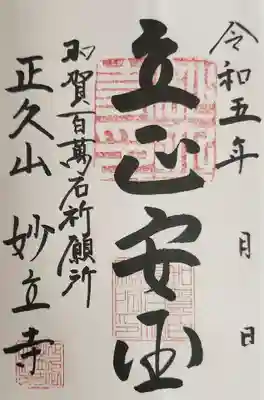 令和五年 月 日
立正安国
加賀百萬石祈願所
正久山 妙立寺